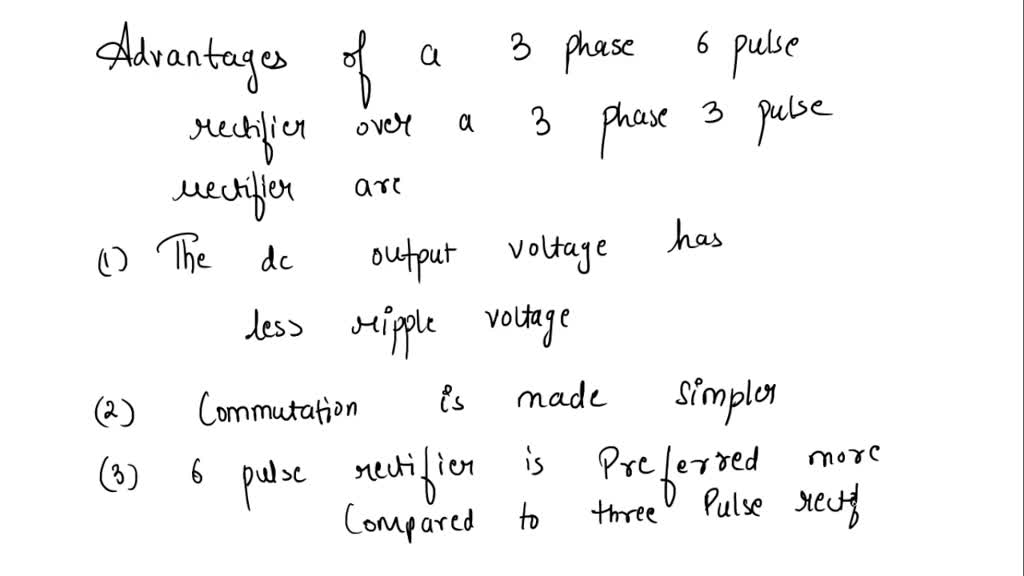 Advantages of a 3 phase 6 pulse
rectifier over a 3 phase 3 pulse
rectifier are
(1) The dc output voltage has
less ripple voltage
(2) Commutation is made simpler
(3) 6 pulse rectifier is Preferred more
Compared to three Pulse rectf